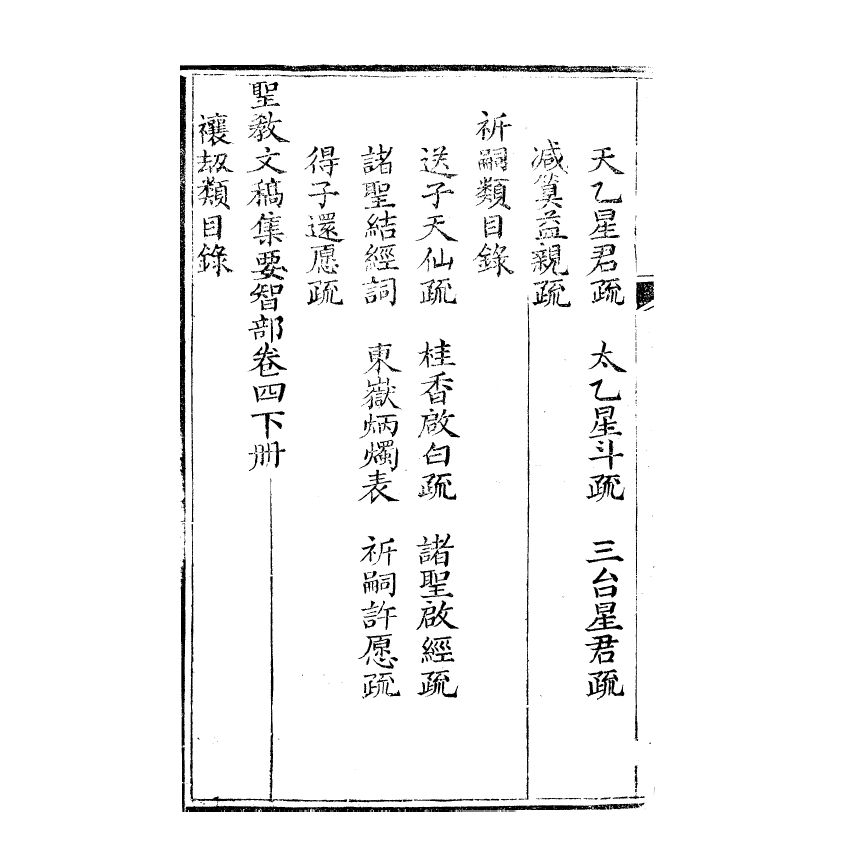 天乙星君疏　太乙星斗疏　三台星君疏
減算益親疏
祈嗣類目錄
送子天仙疏　桂香啟白疏　諸聖啟經疏
諸聖結經詞　東嶽炳燭表　祈嗣許愿疏
得子還愿疏
聖教文稿集要智部卷四下册
禳刼類目錄